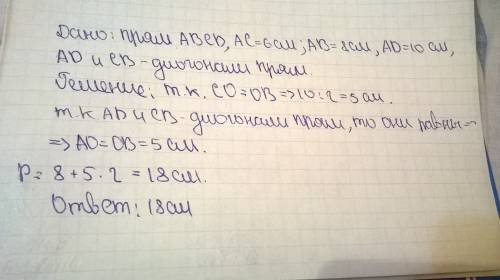 Дано: прям ABCD, AC=6см; AB=8см, AD=10см,
AD и CB - диогонали прям.
Решение: т.к. CO=OB=>10:2=5см.
т.к AD и CB-диогонали прям, то они равны =
=> AO=OB=5см.
P= 8+5·2=18см.
Ответ: 18см